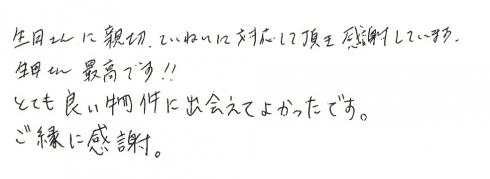 生田さんに親切、ていねいに対応して頂き感謝しています。
生田さん 最高です!!
とても良い物件に出会えてよかったです。
ご縁に感謝。